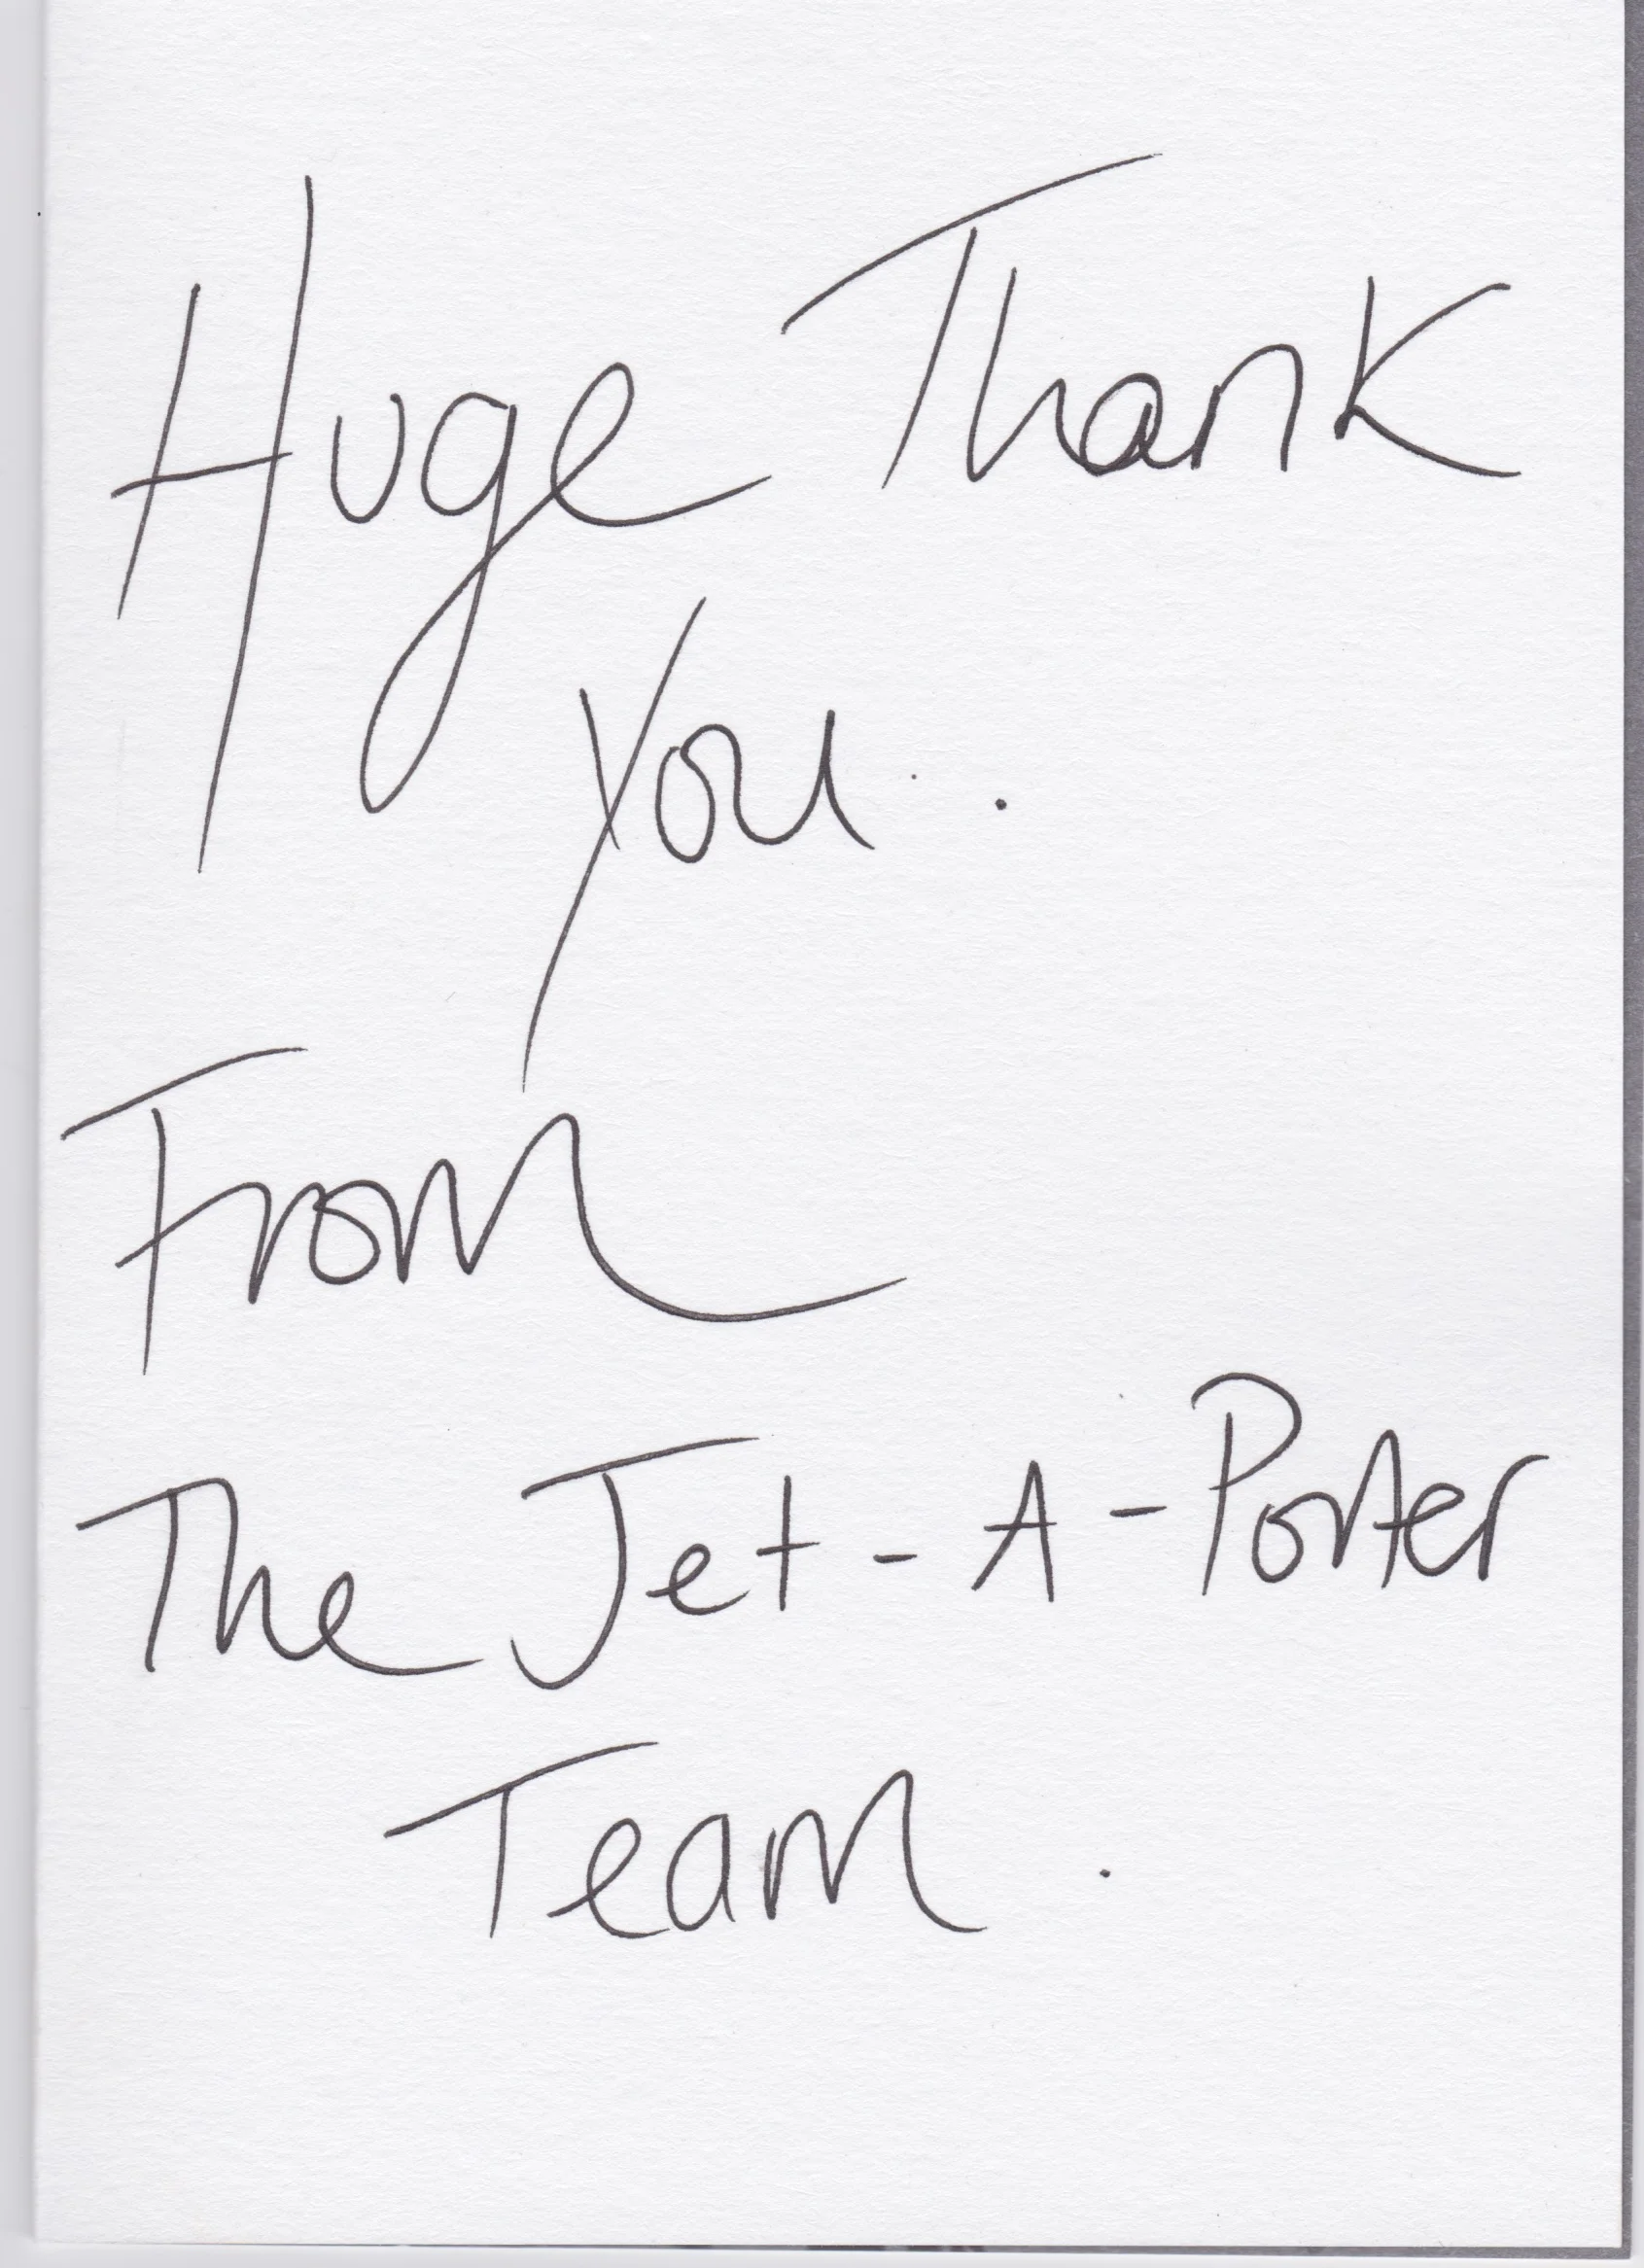 Huge Thank
You .
From
The Jet - A - Porter
Team .